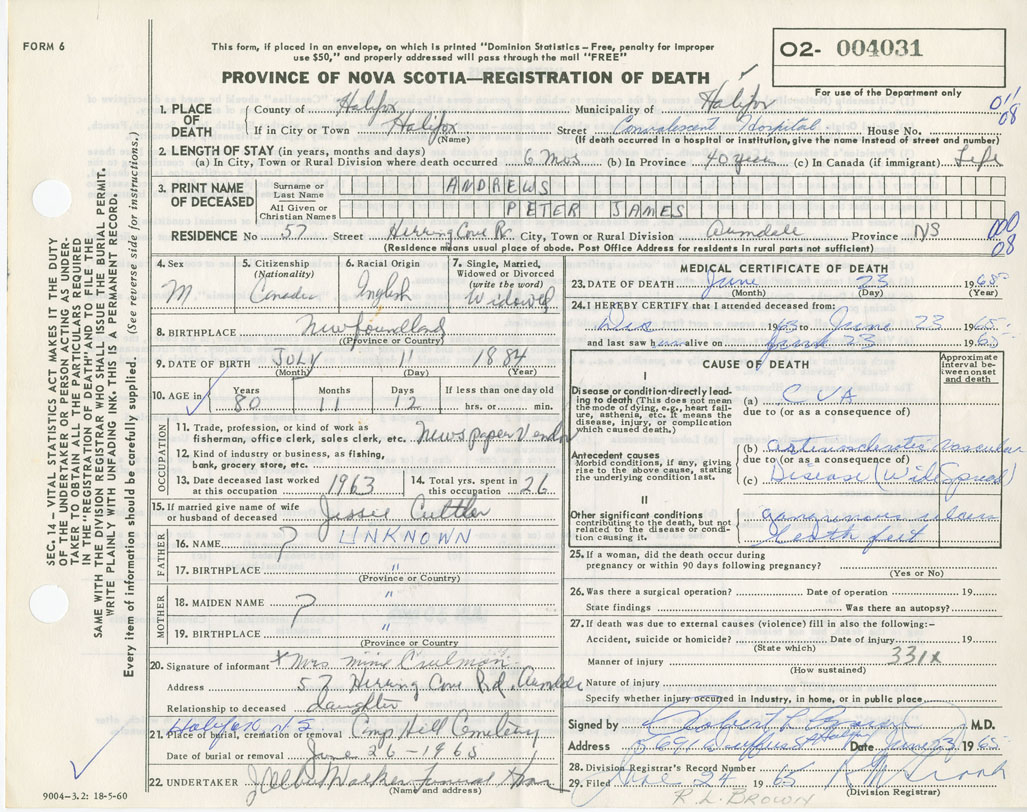 FORM 6
This form, if placed in an envelope, on which is printed "Dominion Statistics – Free, penalty for improper
use $50," and properly addressed will pass through the mail "FREE"
02- 004031
PROVINCE OF NOVA SCOTIA—REGISTRATION OF DEATH
For use of the Department only
1. PLACE OF DEATH County of Halifax Municipality of Halifax 011
08
If in City or Town Halifax Street Convalescent Hospital House No.
(Name) (If death occurred in a hospital or institution, give the name instead of street and number)
2. LENGTH OF STAY (in years, months and days)
(a) In City, Town or Rural Division where death occurred 6 mos (b) In Province 40 years (c) In Canada (if immigrant) Life
3. PRINT NAME OF DECEASED Surname or Last Name ANDREWS
All Given or Christian Names PETER JAMES
RESIDENCE No 57 Street Herring Cove Rd. City, Town or Rural Division Armdale Province NS 000
08
(Residence means usual place of abode. Post Office Address for residents in rural parts not sufficient)
4. Sex M.
5. Citizenship (Nationality) Canada
6. Racial Origin English
7. Single, Married, Widowed or Divorced (write the word) Widowed
8. BIRTHPLACE Newfoundland
(Province or Country)
9. DATE OF BIRTH JULY 11 1884
(Month) (Day) (Year)
10. AGE in Years 80 Months 11 Days 12 If less than one day old hrs. or min.
OCCUPATION
11. Trade, profession, or kind of work as
fisherman, office clerk, sales clerk, etc. Newspaper Vendor
12. Kind of industry or business, as fishing,
bank, grocery store, etc.
13. Date deceased last worked at this occupation 1963 14. Total yrs. spent in this occupation 26
15. If married give name of wife or husband of deceased Jessie
FATHER
16. NAME ? UNKNOWN
17. BIRTHPLACE "
(Province or Country)
MOTHER
18. MAIDEN NAME ? "
19. BIRTHPLACE "
(Province or Country)
20. Signature of informant x Mrs
Address 57 Herring Cove Rd. Armdale
Relationship to deceased daughter
Halifax N S
21. Place of burial, cremation or removal Camp Hill Cemetery
Date of burial or removal June 26 – 1965
22. UNDERTAKER Walker Funeral Home
(Name and address)
MEDICAL CERTIFICATE OF DEATH
23. DATE OF DEATH June 23 1965
(Month) (Day) (Year)
24. I HEREBY CERTIFY that I attended deceased from:
1963 to June 23 1965
and last saw h alive on June 23 1965
CAUSE OF DEATH
Approximate interval between onset and death
I
Disease or condition directly lead-
ing to death (This does not mean
the mode of dying, e.g., heart fail-
ure, asthenia, etc. It means the
disease, injury, or complication
which caused death.)
(a) CVA
due to (or as a consequence of)
Antecedent causes
Morbid conditions, if any, giving
rise to the above cause, stating
the underlying condition last.
(b) arteriosclerotic Vascular
due to (or as a consequence of)
(c) Disease (Wide Spread)
II
Other significant conditions
contributing to the death, but not
related to the disease or condi-
tion causing it.
gangrenous ulcers
both feet
25. If a woman, did the death occur during
pregnancy or within 90 days following pregnancy?
(Yes or No)
26. Was there a surgical operation? Date of operation 19
State findings Was there an autopsy?
27. If death was due to external causes (violence) fill in also the following:–
Accident, suicide or homicide? Date of injury 19
(State which)
331x
Manner of injury
(How sustained)
Nature of injury
Specify whether injury occurred in industry, in home, or in public place
Signed by Robert M.D.
Address Date June 23 1965
28. Division Registrar's Record Number
29. Filed June 24 1965
(Division Registrar)
R. L. BROWN
SEC. 14 – VITAL STATISTICS ACT MAKES IT THE DUTY
OF THE UNDERTAKER OR PERSON ACTING AS UNDER-
TAKER TO OBTAIN ALL THE PARTICULARS REQUIRED
IN THE "REGISTRATION OF DEATH" AND TO FILE THE
SAME WITH THE DIVISION REGISTRAR WHO SHALL ISSUE THE BURIAL PERMIT.
WRITE PLAINLY WITH UNFADING INK. THIS IS A PERMANENT RECORD.
Every item of information should be carefully supplied. (See reverse side for instructions.)
9004–3.2: 18-5-60